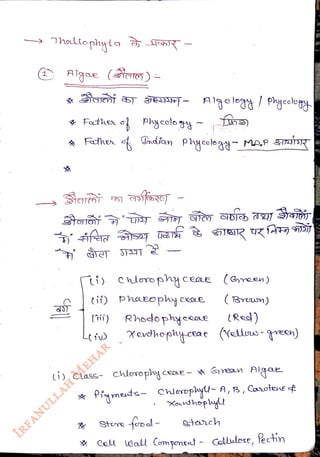 → Thallophyta के प्रकार -
① Algae (शैवाल) :-
* शैवालों का अध्ययन - Algology / Phycology
* Father of Phycology - फ्रिश
* Father of Indian Phycology - M.O.P आयंगर
*
→ शैवालों का वर्गीकरण -
शैवालों में पाये जाने वाले वर्णक तथा शैवालों
में संचित भोज्य पदार्थ के आधार पर निम्न वर्गों
में बाँटा गया है -
(i) Chlorophyceae (Green)
(ii) Phaeophyceae (Brown)
वर्ग
(iii) Rhodophyceae (Red)
(iv) Xanthophyceae (Yellow-green)
(i) Class- Chlorophyceae - * Green Algae
* Pigments - Chlorophyll - A, B, Carotene & Xanthophyll
* Store food - Starch
* Cell Wall Component - Cellulose, Pectin
IRFANULLAH MEHAR